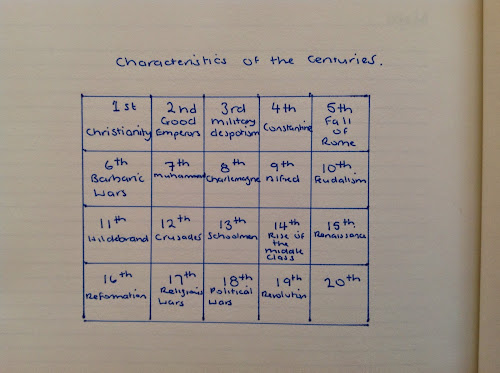 Characteristics of the Centuries.
1st
Christianity
2nd
Good
Emperors
3rd
military
despotism
4th
Constantine
5th
Fall
of
Rome
6th
Barbaric
Wars
7th
Muhammed
8th
Charlemagne
9th
Alfred
10th
Feudalism
11th
Hildebrand
12th
Crusades
13th
Schoolmen
14th
Rise of
the
middle
Class
15th
Renaissance
16th
Reformation
17th
Religious
Wars
18th
Political
Wars
19th
Revolution
20th